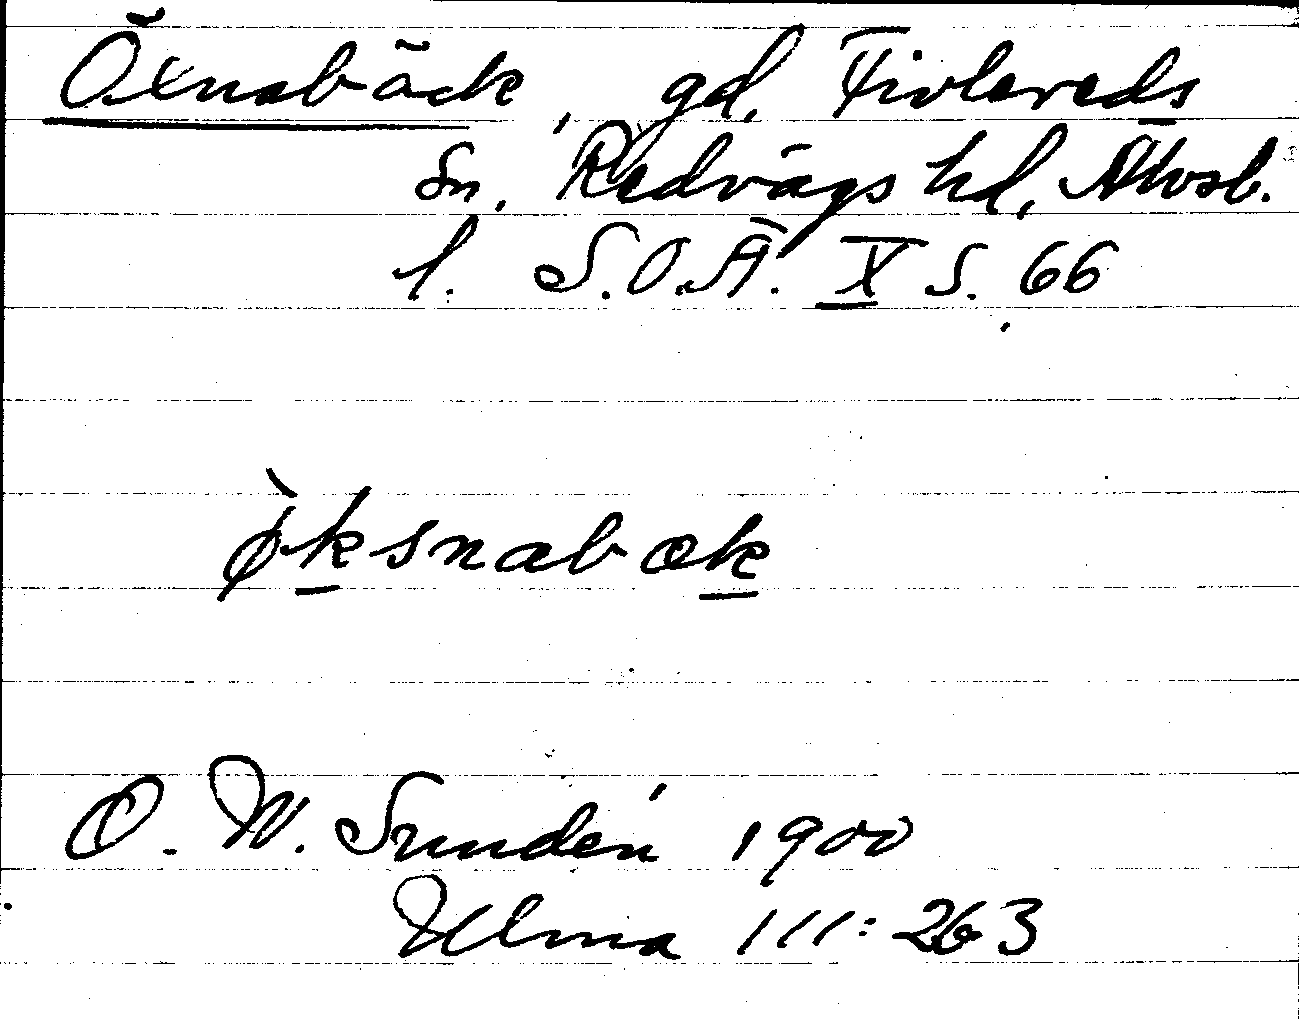 Öxnabäck, gd, Fivlereds
sn, Redvägs hd, Älvsb.
l. S.O.Ä. X S. 66
ø̀ksnabæk
O. W. Sundén 1900
Ulma 111:263